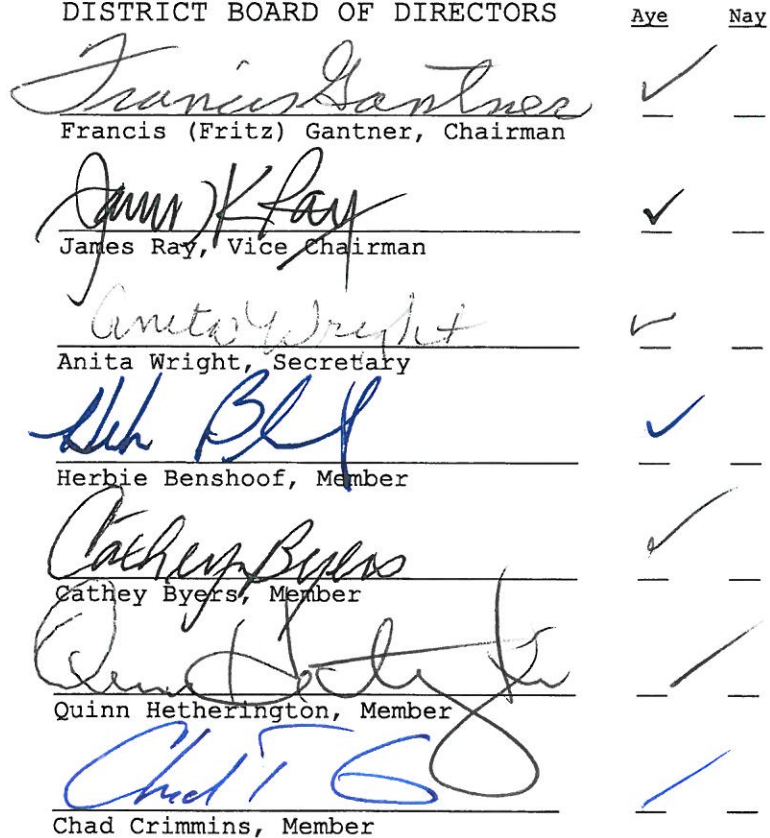 DISTRICT BOARD OF DIRECTORS Aye Nay
Francis Gantner ✓
Francis (Fritz) Gantner, Chairman
James K Ray ✓
James Ray, Vice Chairman
Anita Wright ✓
Anita Wright, Secretary
✓
Herbie Benshoof, Member
Cathey Byers ✓
Cathey Byers, Member
Quinn Hetherington
Quinn Hetherington, Member
Chad T C
Chad Crimmins, Member